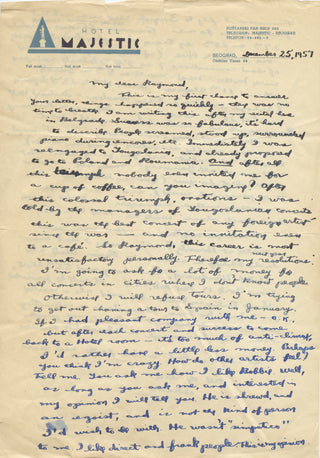 HOTEL
MAJESTIC
BEOGRAD, December 25, 1957
My dear Raymond,
This is my first chance to answer
Your letter, things happened so quickly – there was no
time to breath. I am writing this after my recital here
in Belgrade. Success was so fabulous, it's hard
to describe. People screamed, stood up, surrounded
piano during encores, etc. Immediately I was
reengaged to Yugoslavia, and already proposed
to go to Poland and Roumania. And after all
this triumph nobody even invited me for
a cup of coffee, can you imagine? After
this colossal triumph, ovations – I was
told by the managers of Yougoslavian concerts
this was the best concert of any foreign artist
using the war – and no invitation even
to a café. So Raymond, this career is most
unsatisfactory personally. Therefore my next year's resolutions:
I'm going to ask for a lot of money for
all concerts in cities where I don't know people.
Otherwise I will refuse tours. I'm trying
to get out of having a tour to Spain in January.
If I had pleasant company with me – O.K.
but after each concert and success to come
back to a Hotel room – it's too much of anti-climax,
I'd rather have a little less money. Perhaps
you think I'm crazy? How do other artists feel?
Tell me. You ask me how I like Robbie Wall,
as long as you ask me, and interested in
my opinion I will tell you. He is shrewd, and
an egoist, and is not the kind of person
I'd wish to be with. He wasn't "simpatico"
to me. I like direct and frank people. This is my opinion.